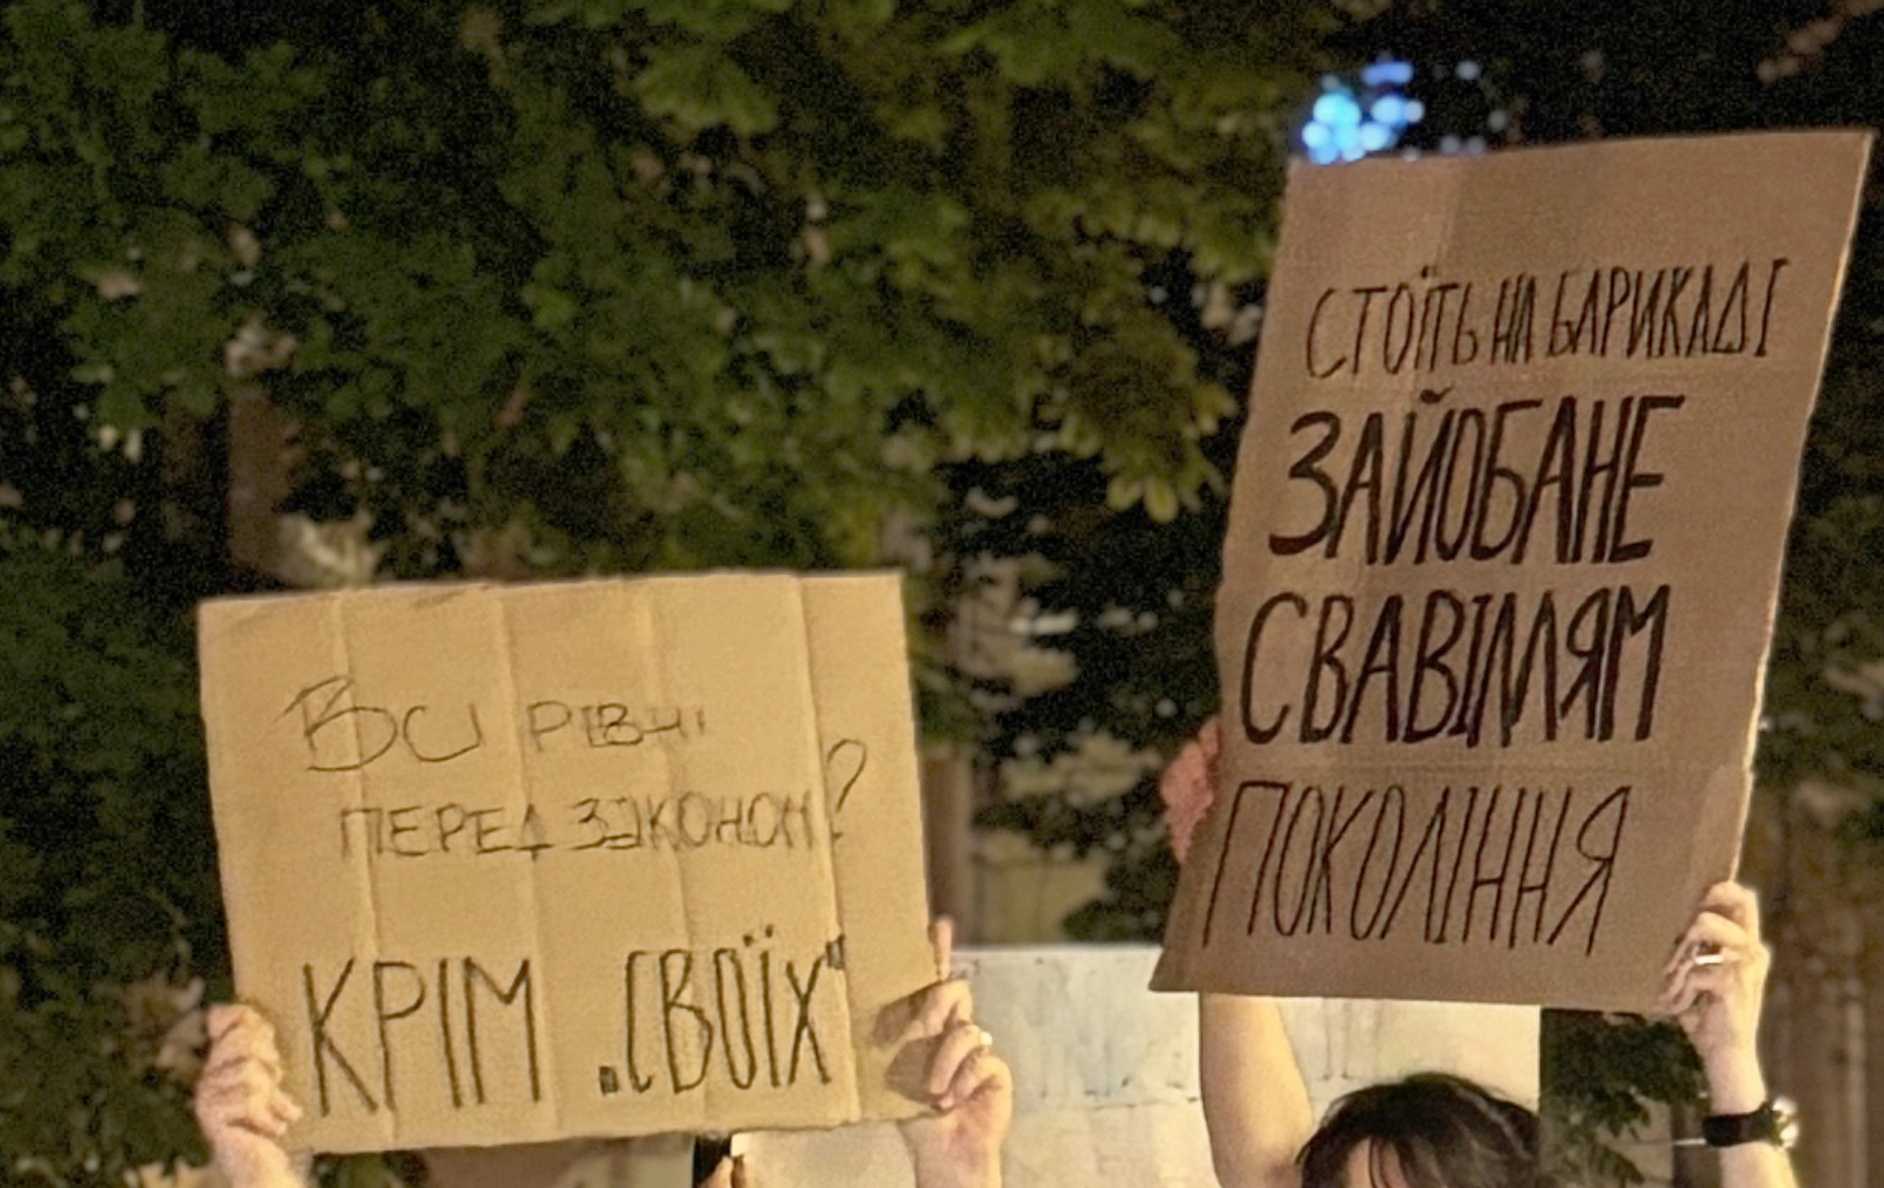 Всі рівні
перед законом?
КРІМ „СВОЇХ"
СТОЇТЬ НА БАРИКАДІ
ЗАЙОБАНЕ
СВАВІЛЛЯМ
ПОКОЛІННЯ